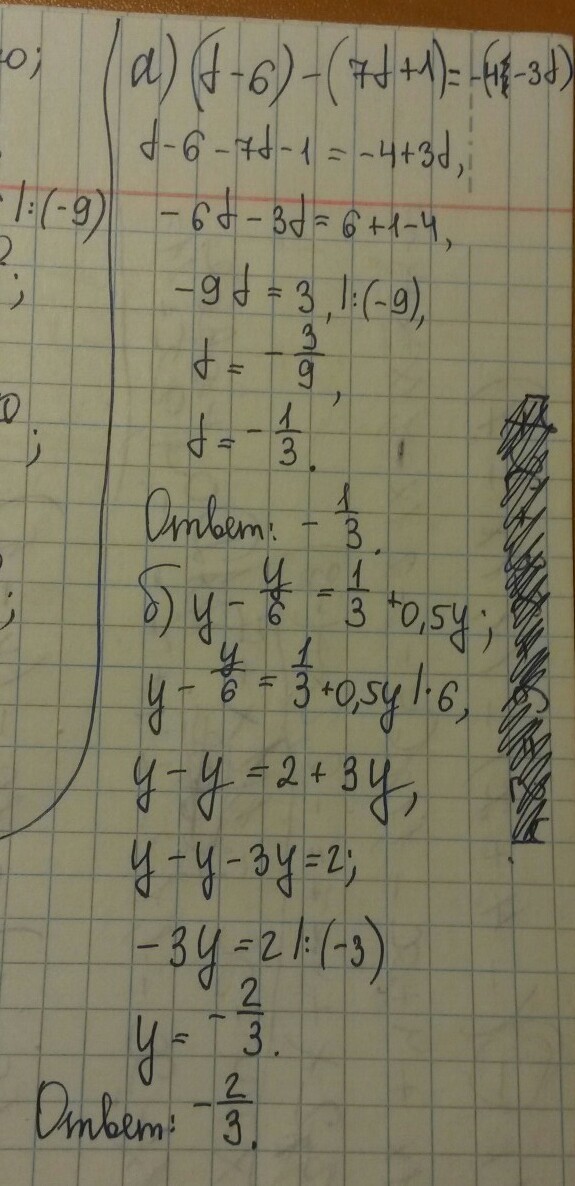 ю;
|:(-9)
;
0
;
;
а) (t-6)-(7t+1)=-(4-3t)
t-6-7t-1=-4+3t,
-6t-3t=6+1-4,
-9t=3, |:(-9),
t=-3/9,
t=-1/3.
Ответ: -1/3.
б) y-y/6=1/3+0,5y;
y-y/6=1/3+0,5y |·6,
y-y=2+3y,
y-y-3y=2;
-3y=2 |:(-3)
y=-2/3.
Ответ: -2/3.